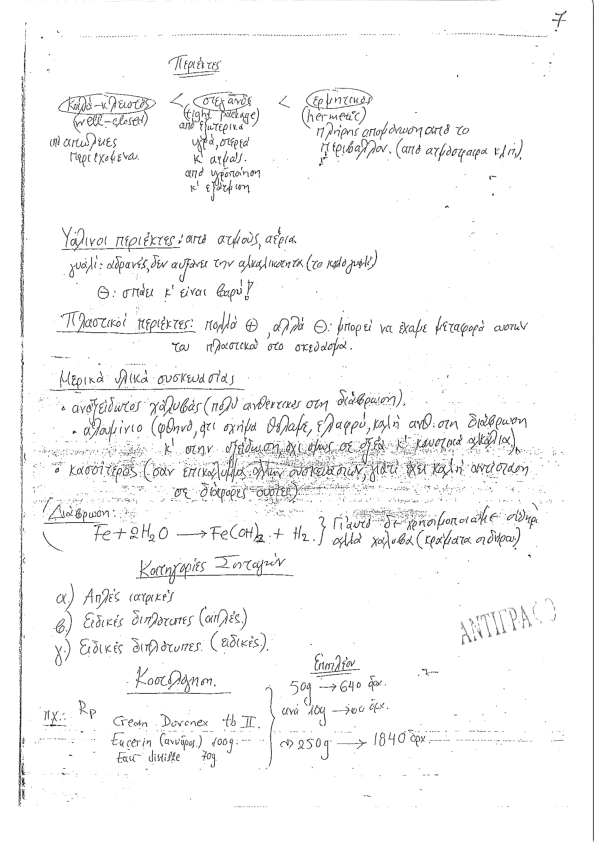 7
Περιέκτες
Καλά-κλειστός < στεγανός < ερμητικός
(well-closed) (tight package) (hermetic)
απώλειες από εξωτερικά πλήρης απομόνωση από το
περιεχομένου. υγρά, στερεά περιβάλλον. (από ατμόσφαιρα κλπ).
κ' ατμούς.
από υγροποίηση
κ' εξάτμιση
Υάλινοι περιέκτες: από ατμούς, αέρια
γυαλί: αδρανές, δεν αυξάνει την αλκαλικότητα (το καλό γυαλί)
Θ: σπάει κ' είναι βαρύ!
Πλαστικοί περιέκτες: πολλά ⊕, αλλά Θ: μπορεί να έχουμε μεταφορά ουσιών
του πλαστικού στο σκεύασμα.
Μερικά υλικά συσκευασίας
• ανοξείδωτος χάλυβας (πολύ ανθεκτικός στη διάβρωση).
• αλουμίνιο (φθηνό, ότι σχήμα θέλουμε, ελαφρύ, καλή ανθ. στη διάβρωση
κ' στην οξείδωση, όχι όμως σε οξέα κ' καυστικά αλκάλια).
• κασσίτερος (σαν επικάλυμμα άλλων συσκευασιών, γιατί έχει καλή αντίσταση
σε διάφορες ουσίες)
Διάβρωση:
Fe + 2H₂O → Fe(OH)₂ + H₂ } Γι' αυτό δε χρησιμοποιούμε σίδηρο
αλλά χάλυβα (κράματα σιδήρου)
Κατηγορίες Συνταγών
α) Απλές ιατρικές
β) Ειδικές διπλότυπες (απλές)
γ) Ειδικές διπλότυπες (ειδικές).
ΑΝΤΙΓΡΑΦΟ
Κοστολόγηση. Επιπλέον
50g → 640 δρχ.
πχ.: Rp ανά 10g → δρχ.
Cream Dovonex tb II.
Eucerin (ανυδρος) 100g. 250g → 1840 δρχ
Eau distillée 70g